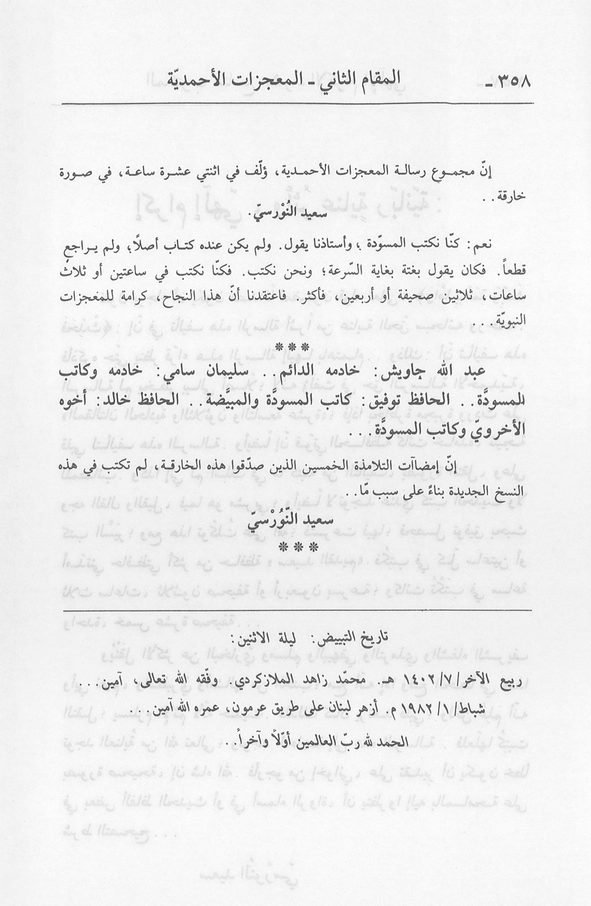 ٣٥٨ - المقام الثاني - المعجزات الأحمديّة
إنّ مجموع رسالة المعجزات الأحمدية، ؤلّف في اثنتي عشرة ساعة، في صورة
خارقة..
سعيد النُّوْرْسيّ.
نعم: كنّا نكتب المسوّدة ؛ وأستاذنا يقول. ولم يكن عنده كتاب أصلًا؛ ولم يراجع
قطعاً. فكان يقول بغتة بغاية السّرعة؛ ونحن نكتب. فكنّا نكتب في ساعتين أو ثلاث
ساعات، ثلاثين صحيفة أو أربعين، فأكثر. فاعتقدنا أنّ هذا النجاح، كرامة للمعجزات
النبويّة...
***
عبد الله جاويش: خادمه الدائم.. سليمان سامي: خادمه وكاتب
المسودَّة.. الحافظ توفيق: كاتب المسودَّة والمبيَّضة.. الحافظ خالد: أخوه
الأخرويّ وكاتب المسودَّة...
إنّ إمضاآت التلامذة الخمسين الذين صدّقوا هذه الخارقة، لم تكتب في هذه
النسخ الجديدة بناءً على سبب مّا..
سعيد النُّوْرْسيّ
***
تاريخ التبييض: ليلة الاثنين:
ربيع الآخر/٧/١٤٠٢ هـ. محمّد زاهد الملازكردي. وفّقه الله تعالى، آمين...
شباط/١/١٩٨٢ م. أزهر لبنان على طريق عرمون، عمره الله آمين...
الحمد لله ربّ العالمين أوّلاً وآخراً..